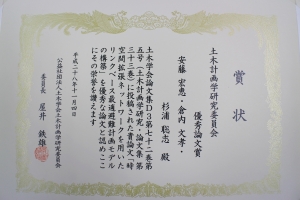 賞状
土木計画学研究委員会
優秀論文賞
安藤 宏恵・倉内 文孝・
杉浦 聡志 殿
土木学会論文集D3第七十二巻第
五号(土木計画学研究・論文集第
三十三巻)に投稿された貴論文「時
空間拡張ネットワークを用いた
リンクベース最適避難計画モデル
の構築」を優秀な論文と認めここ
にその栄誉を讃えます
平成二十八年十一月四日
公益社団法人土木学会土木計画学研究委員会
委員長 屋井 鉄雄